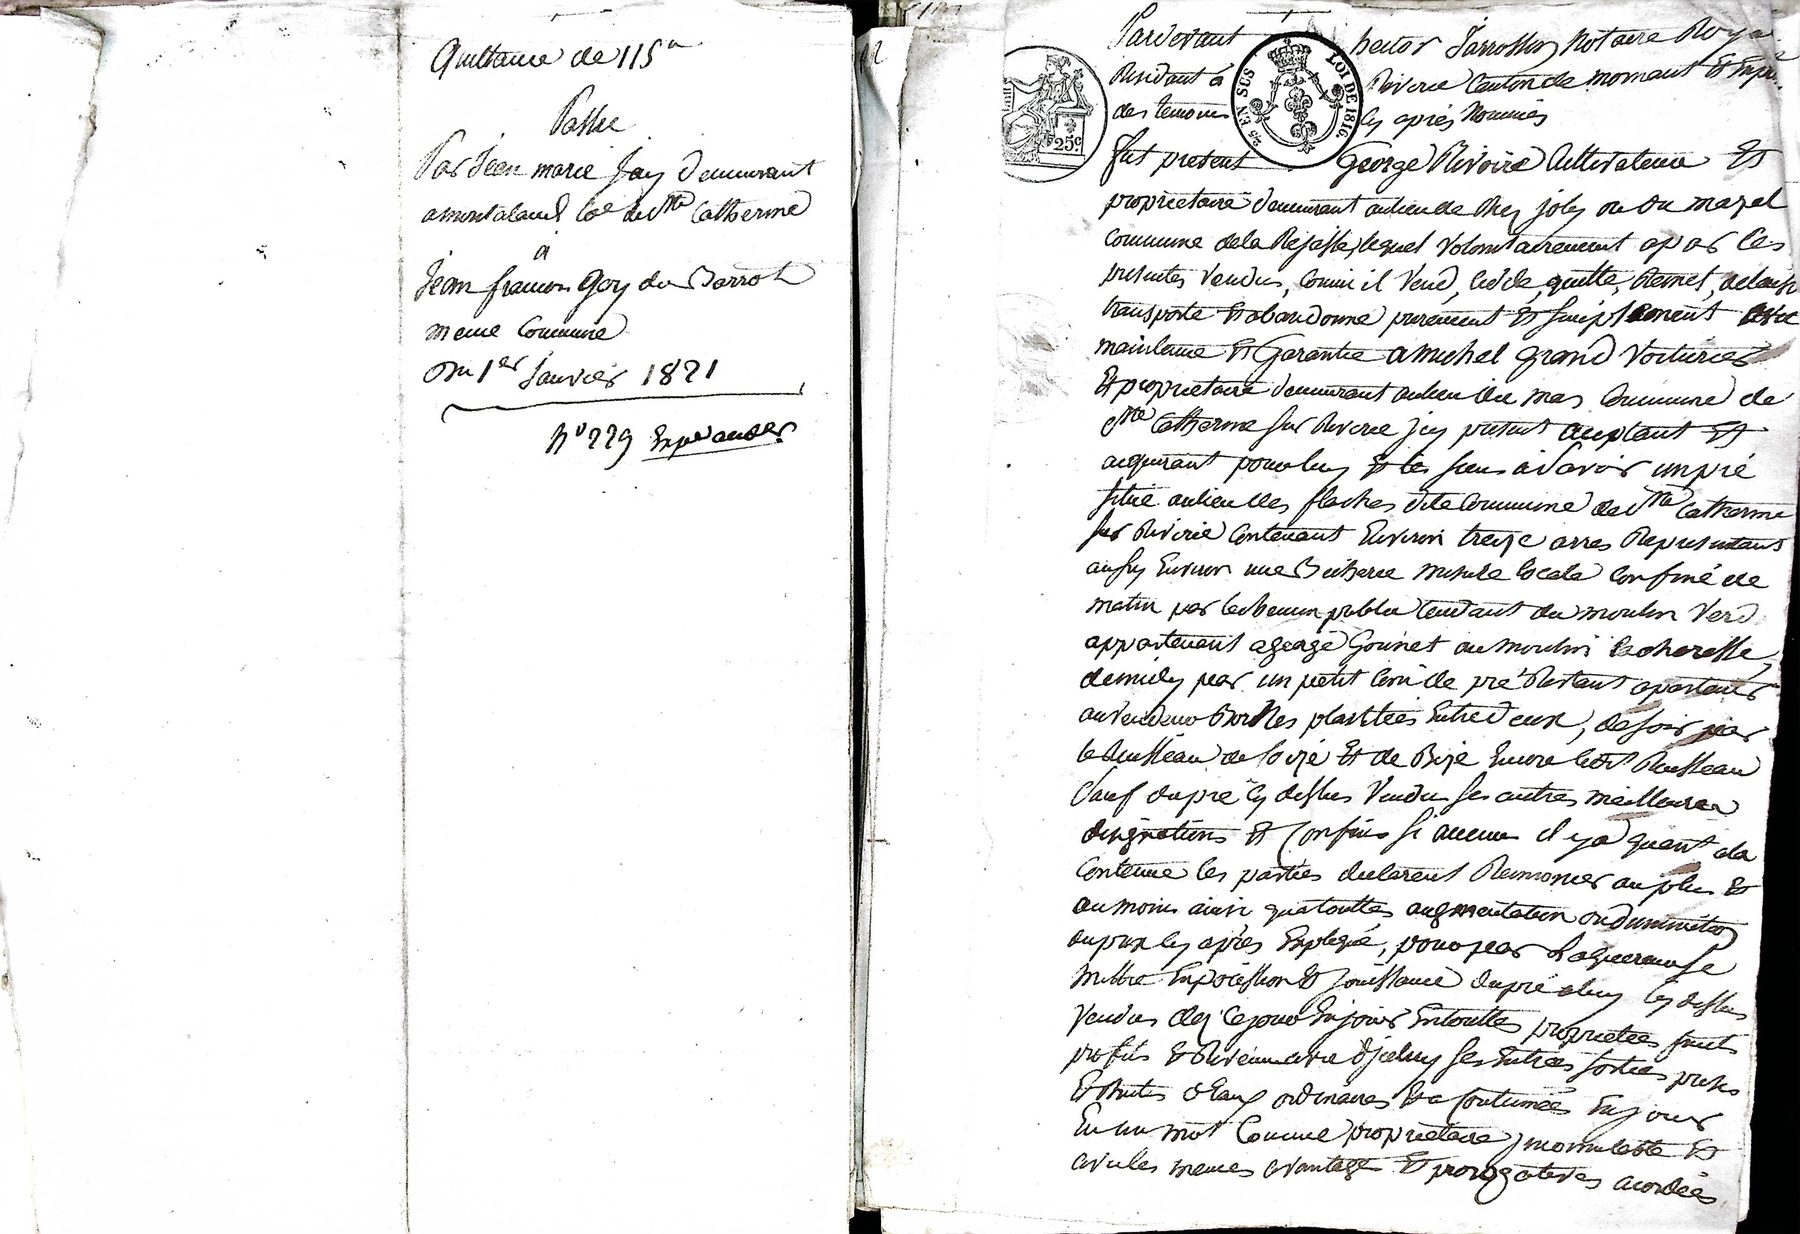 Quittance de 115 fr
Passée
Par Jean marie Jay demeurant
a montaland Coe de Ste Catherine
a
Jean francois Goy du Barrot
meme Commune
Du 1er Janvier 1821
No 229
Pardevant hector Jarrosson Notaire Roya
Residant à Riverie Canton de mornant Et
des temoins cy après Nommés
25 EN SUS
LOI DE 1816.
25c.
fut present George Rivoire Cultivateur Et
propriétaire demeurant au lieu de chez joly ou du mazel
Commune de la Rajasse, lequel volontairement a par Ces
presentes vendu, comme il vend, cede, quitte, Remet, delaisse
transporte Et abandonne purement Et simplement avec
maintenue Et Garantie a michel grand voiturier
Et proprietaire demeurant au lieu du mas Commune de
Ste Catherine sur Riverie icy present acceptant Et
acquerant pour luy Et les siens a Savoir un pré
situé au lieu des flaches dite Commune de Ste Catherine
sur Riverie Contenant Environ treize arres Representant
aussy Environ une Bicherée mesure locale confiné de
matin par le chemin public tendant du moulin Verd
appartenant a george Goinet au moulin
de midy par un petit Coin de pré Restant apartenir
au vendeur Bornes plantées Entre deux, de soir par
le Ruisseau de Et de Bize Encore ledt Ruisseau
Sauf du pré cy dessus Vendu ses autres meilleures
designations Et Confins si aucuns il y a quant a la
Contenue les parties declarent Renoncer au plus Et
au moins ainsi qua touttes augmentation ou diminution
du prix cy après Expliqué, pour par Laquereur se
mettre En possession Et jouissance du pré a luy cy dessus
Vendu dez ce jour En jouir En touttes proprietées fruits
profits Et Revenus avec d'jceluy ses Entrées sorties prises
Et d'Eaux ordinaires Et a Coutumées En jouir
En un mot Comme proprietaire jncomutable Et
avec les memes avantages Et prerogatives acordées